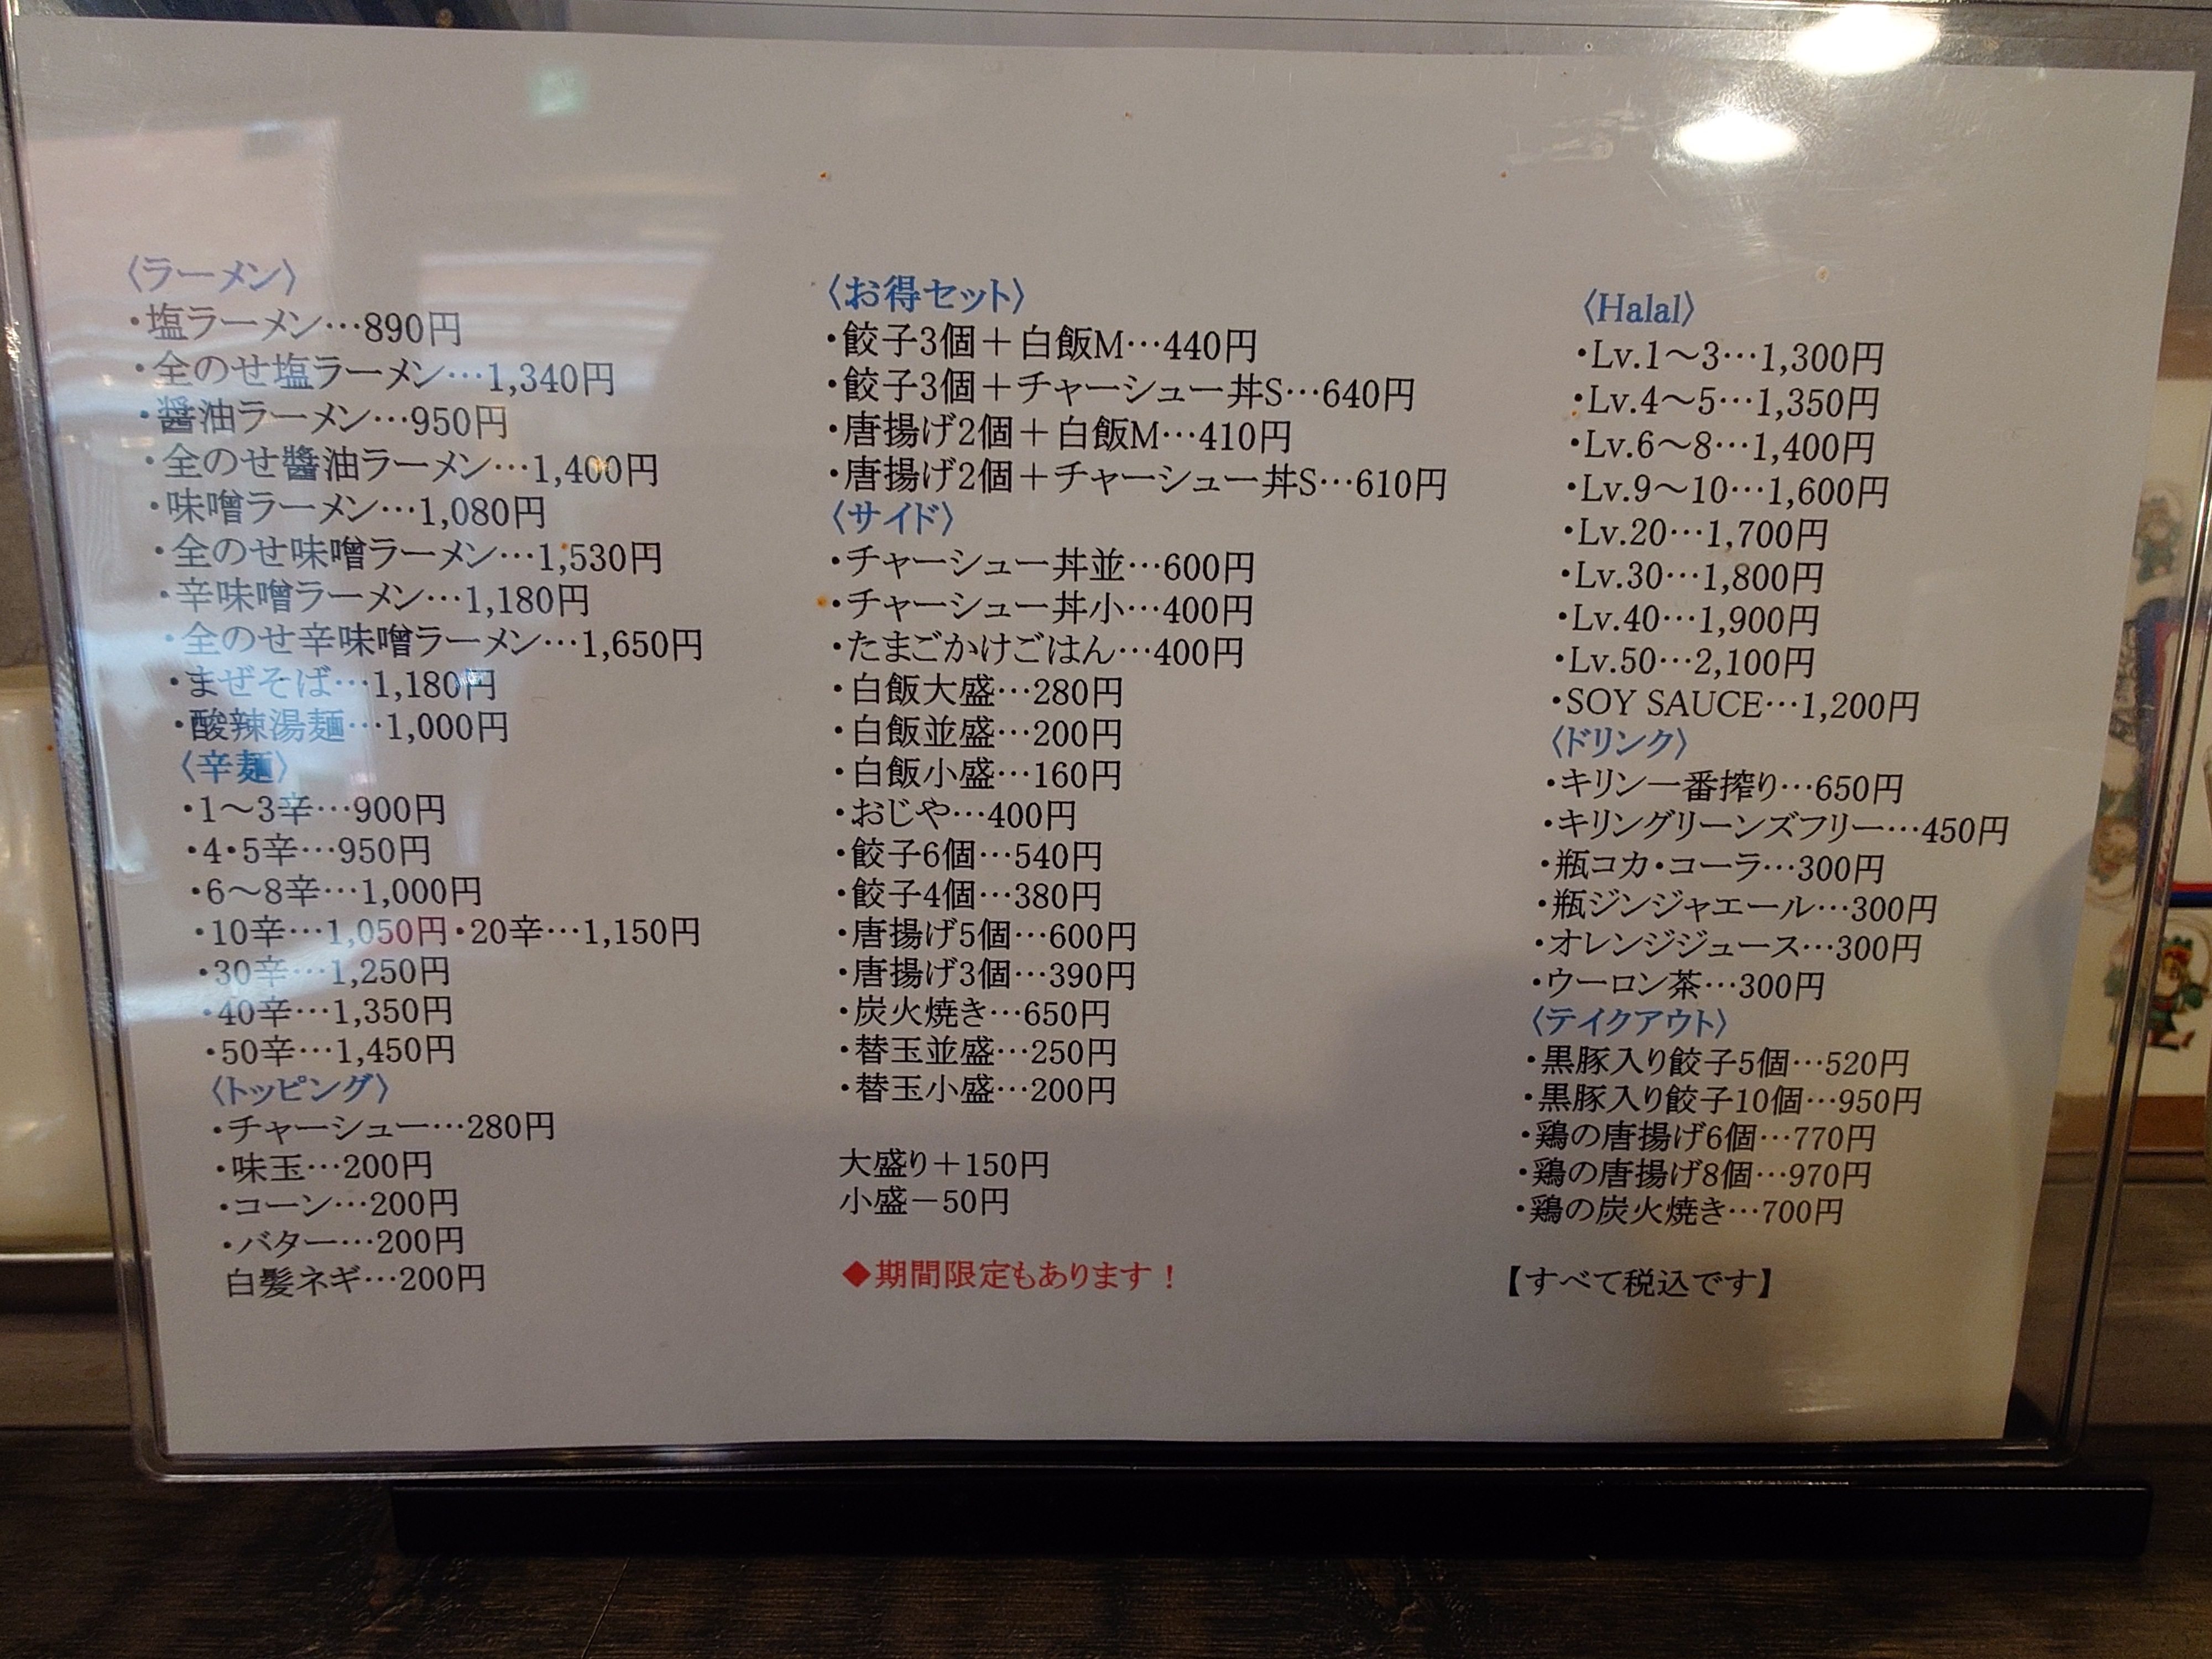 〈ラーメン〉
・塩ラーメン…890円
・全のせ塩ラーメン…1,340円
・醤油ラーメン…950円
・全のせ醬油ラーメン…1,400円
・味噌ラーメン…1,080円
・全のせ味噌ラーメン…1,530円
・辛味噌ラーメン…1,180円
・全のせ辛味噌ラーメン…1,650円
・まぜそば…1,180円
・酸辣湯麺…1,000円
〈辛麺〉
・1～3辛…900円
・4・5辛…950円
・6～8辛…1,000円
・10辛…1,050円・20辛…1,150円
・30辛…1,250円
・40辛…1,350円
・50辛…1,450円
〈トッピング〉
・チャーシュー…280円
・味玉…200円
・コーン…200円
・バター…200円
白髪ネギ…200円
〈お得セット〉
・餃子3個＋白飯M…440円
・餃子3個＋チャーシュー丼S…640円
・唐揚げ2個＋白飯M…410円
・唐揚げ2個＋チャーシュー丼S…610円
〈サイド〉
・チャーシュー丼並…600円
・チャーシュー丼小…400円
・たまごかけごはん…400円
・白飯大盛…280円
・白飯並盛…200円
・白飯小盛…160円
・おじや…400円
・餃子6個…540円
・餃子4個…380円
・唐揚げ5個…600円
・唐揚げ3個…390円
・炭火焼き…650円
・替玉並盛…250円
・替玉小盛…200円
大盛り＋150円
小盛－50円
◆期間限定もあります！
〈Halal〉
・Lv.1～3…1,300円
・Lv.4～5…1,350円
・Lv.6～8…1,400円
・Lv.9～10…1,600円
・Lv.20…1,700円
・Lv.30…1,800円
・Lv.40…1,900円
・Lv.50…2,100円
・SOY SAUCE…1,200円
〈ドリンク〉
・キリン一番搾り…650円
・キリングリーンズフリー…450円
・瓶コカ・コーラ…300円
・瓶ジンジャエール…300円
・オレンジジュース…300円
・ウーロン茶…300円
〈テイクアウト〉
・黒豚入り餃子5個…520円
・黒豚入り餃子10個…950円
・鶏の唐揚げ6個…770円
・鶏の唐揚げ8個…970円
・鶏の炭火焼き…700円
【すべて税込です】